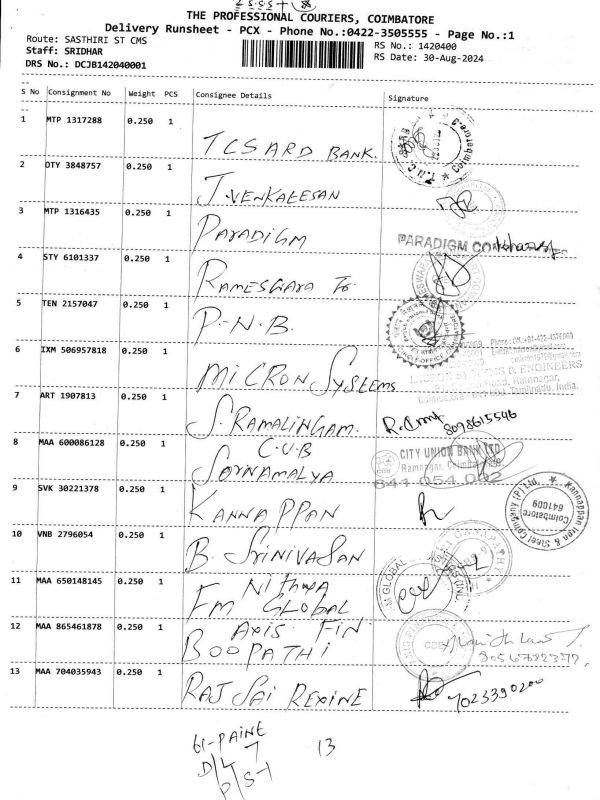 THE PROFESSIONAL COURIERS, COIMBATORE
Delivery Runsheet - PCX - Phone No.:0422-3505555 - Page No.:1
Route: SASTHIRI ST CMS
Staff: SRIDHAR
DRS No.: DCJB142040001
RS No.: 1420400
RS Date: 30-Aug-2024
S No Consignment No Weight PCS Consignee Details Signature
1 MTP 1317288 0.250 1 TCSARD BANK.
2 OTY 3848757 0.250 1 J.VENKATESAN
3 MTP 1316435 0.250 1 PARADIGM
PARADIGM
4 STY 6101337 0.250 1 RAMESWARA
5 TEN 2157047 0.250 1 P.N.B.
6 IXM 506957818 0.250 1 MICRON SYSTEMS
& ENGINEERS
Ramnagar,
7 ART 1907813 0.250 1 S.RAMALINGAM. 8098615546
8 MAA 600086128 0.250 1 C.U.B
SORNAMALYA
CITY UNION BANK LTD
Ramnagar, Coimbatore
9 SVK 30221378 0.250 1 KANNAPPAN
Kannappan Iron & Steel Company (P) Ltd.
Coimbatore
641009
10 VNB 2796054 0.250 1 B. SRINIVASAN
11 MAA 650148145 0.250 1 NITHYA
FM GLOBAL
M GLOBAL
12 MAA 865461878 0.250 1 AXIS FIN
BOOPATHI
13 MAA 704035943 0.250 1 RAJ SAI REXINE
7023390200
13